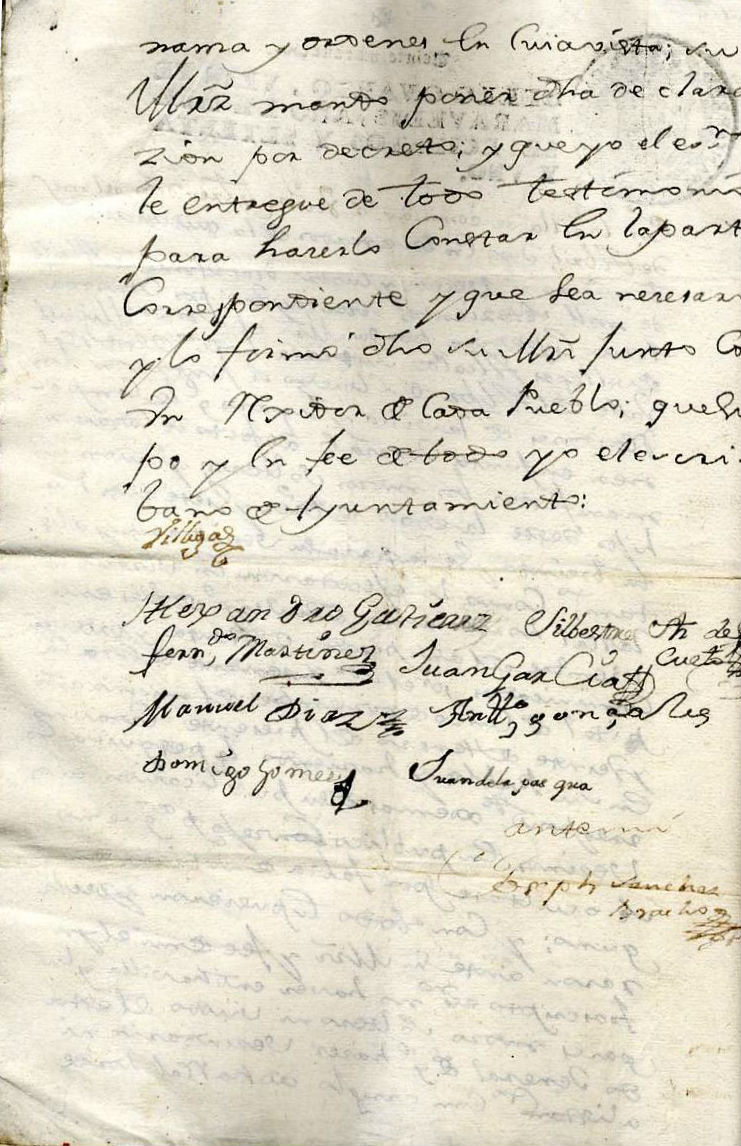 nama y ordenes, En Cuia vista; su
Mrz mando poner dha declara
zion por decreto; y que yo el esno
le entregue de todo testimoni
para hacerlo Constar En la part
Correspondiente y que sea nezesari
y lo firmo dho su Mrz Junto Co
Un Rexidor de Cada Pueblo; que su
po y En fee de todo yo el escri
bano de Ayuntamiento:
Villegas
Alexandro Gutierrez Silbestre An de
fernndo Martinez Juan Garcia Cueto
Manuel Diaz Antto gonzales
Domigo Gomes Juan de la pas qua
antemi
Joseph Sanchez